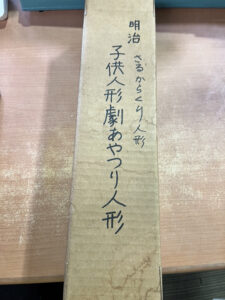 明治 さるからくり人形
子供人形劇あやつり人形